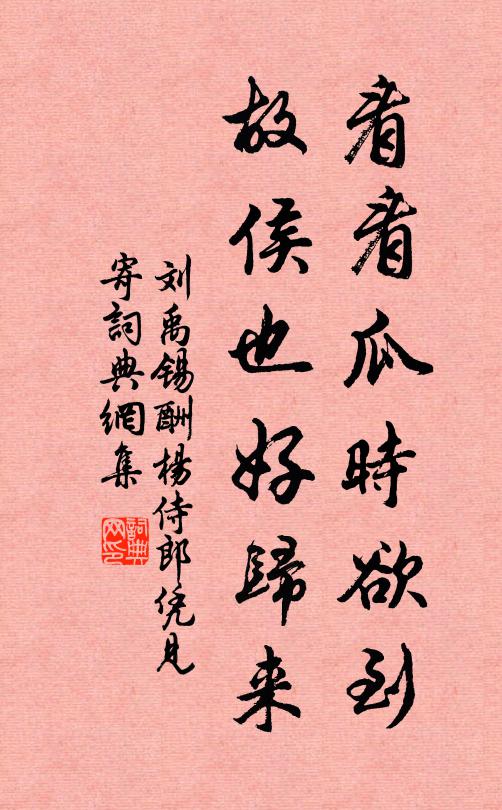 看看瓜時欲到
故侯也好歸来
刘禹锡酬楊侍郎凭見
寄詞典網集
詞典网印